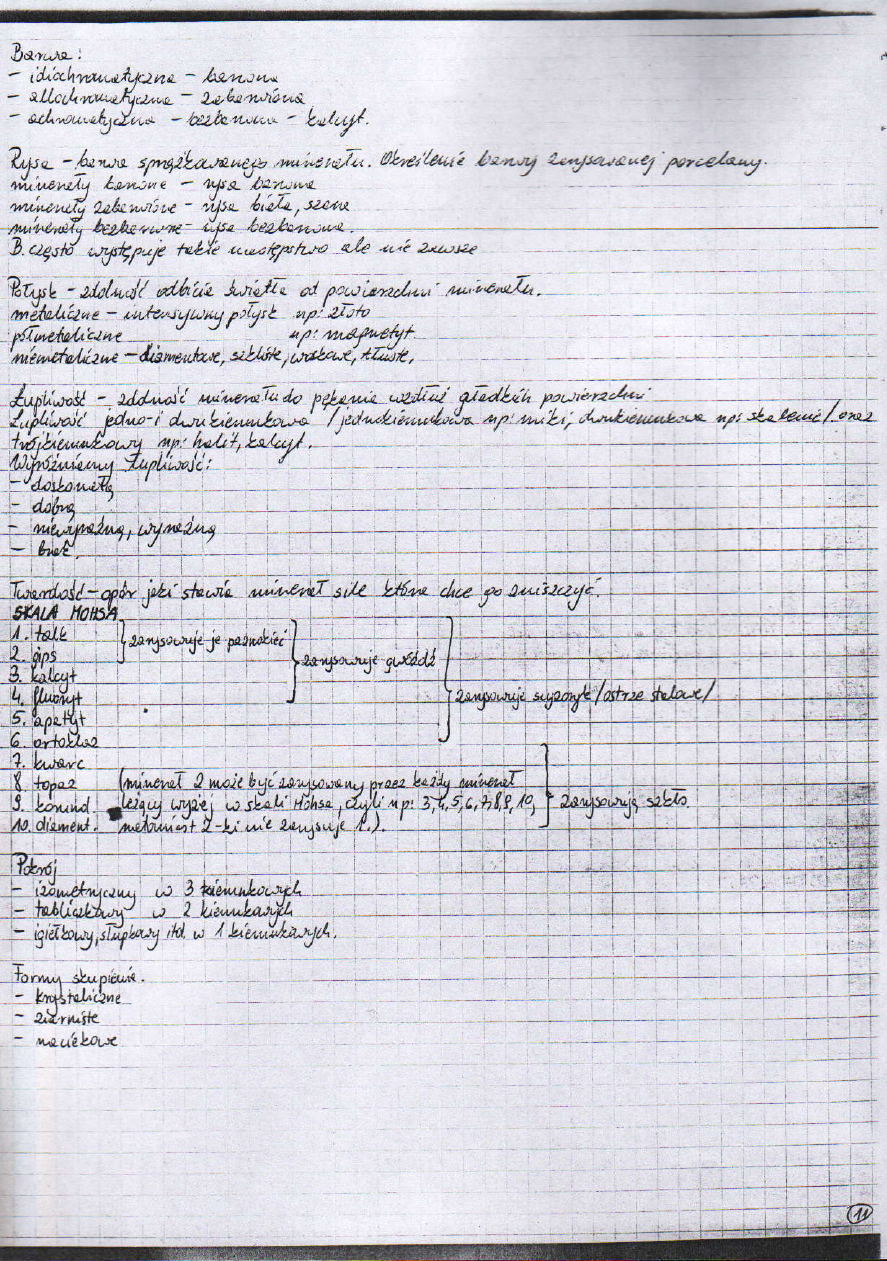 Barwa:
- idiochromatyczna - barwna
- allochromatyczna - zabarwiona
- achromatyczna - bezbarwna - kalcyt.
Rysa - barwa sproszkowanego minerału. Określenie barwy zarysowanej porcelany.
minerały barwne - rysa barwna
minerały zabarwione - rysa biała, szara
minerały bezbarwne - rysa bezbarwna.
B. często występuje takie następstwo ale nie zawsze
Połysk - zdolność odbicia światła od powierzchni minerału.
metaliczne - intensywny połysk np: złoto
półmetaliczne np: magnetyt
niemetaliczne - diamentowe, szkliste, woskowe, tłuste,
Łupliwość - zdolność minerału do pękania wzdłuż gładkich powierzchni
Łupliwość jedno- i dwukierunkowa /jednokierunkowa np: miki, dwukierunkowa np: skalenie/ oraz
trójkierunkowy np: halit, kalcyt.
Wyróżniamy łupliwość:
- doskonałą
- dobrą
- niewyraźną, wyraźną
- brak.
Twardość - opór jaki stawia minerał sile która chce go zniszczyć.
SKALA MOHSA
1. talk
2. gips } zarysowuje je paznokieć
3. kalcyt
4. fluoryt } zarysowuje gwóźdź
5. apatyt
6. ortoklaz } zarysowuje scyzoryk /ostrze stalowe/
7. kwarc
8. topaz (minerał 2 może być zarysowany przez każdy minerał
9. korund leżący wyżej w skali Mohsa, czyli np: 3,4,5,6,7,8,9,10, } zarysowują szkło.
10. diament. natomiast 2-ki nie zarysuje 1.).
Pokrój
- izometryczny w 3 kierunkowych
- tabliczkowy w 2 kierunkowych
- igiełkowy, słupkowy itd. w 1 kierunkowych.
Formy skupienia.
- krystaliczne
- ziarniste
- naciekowe
11